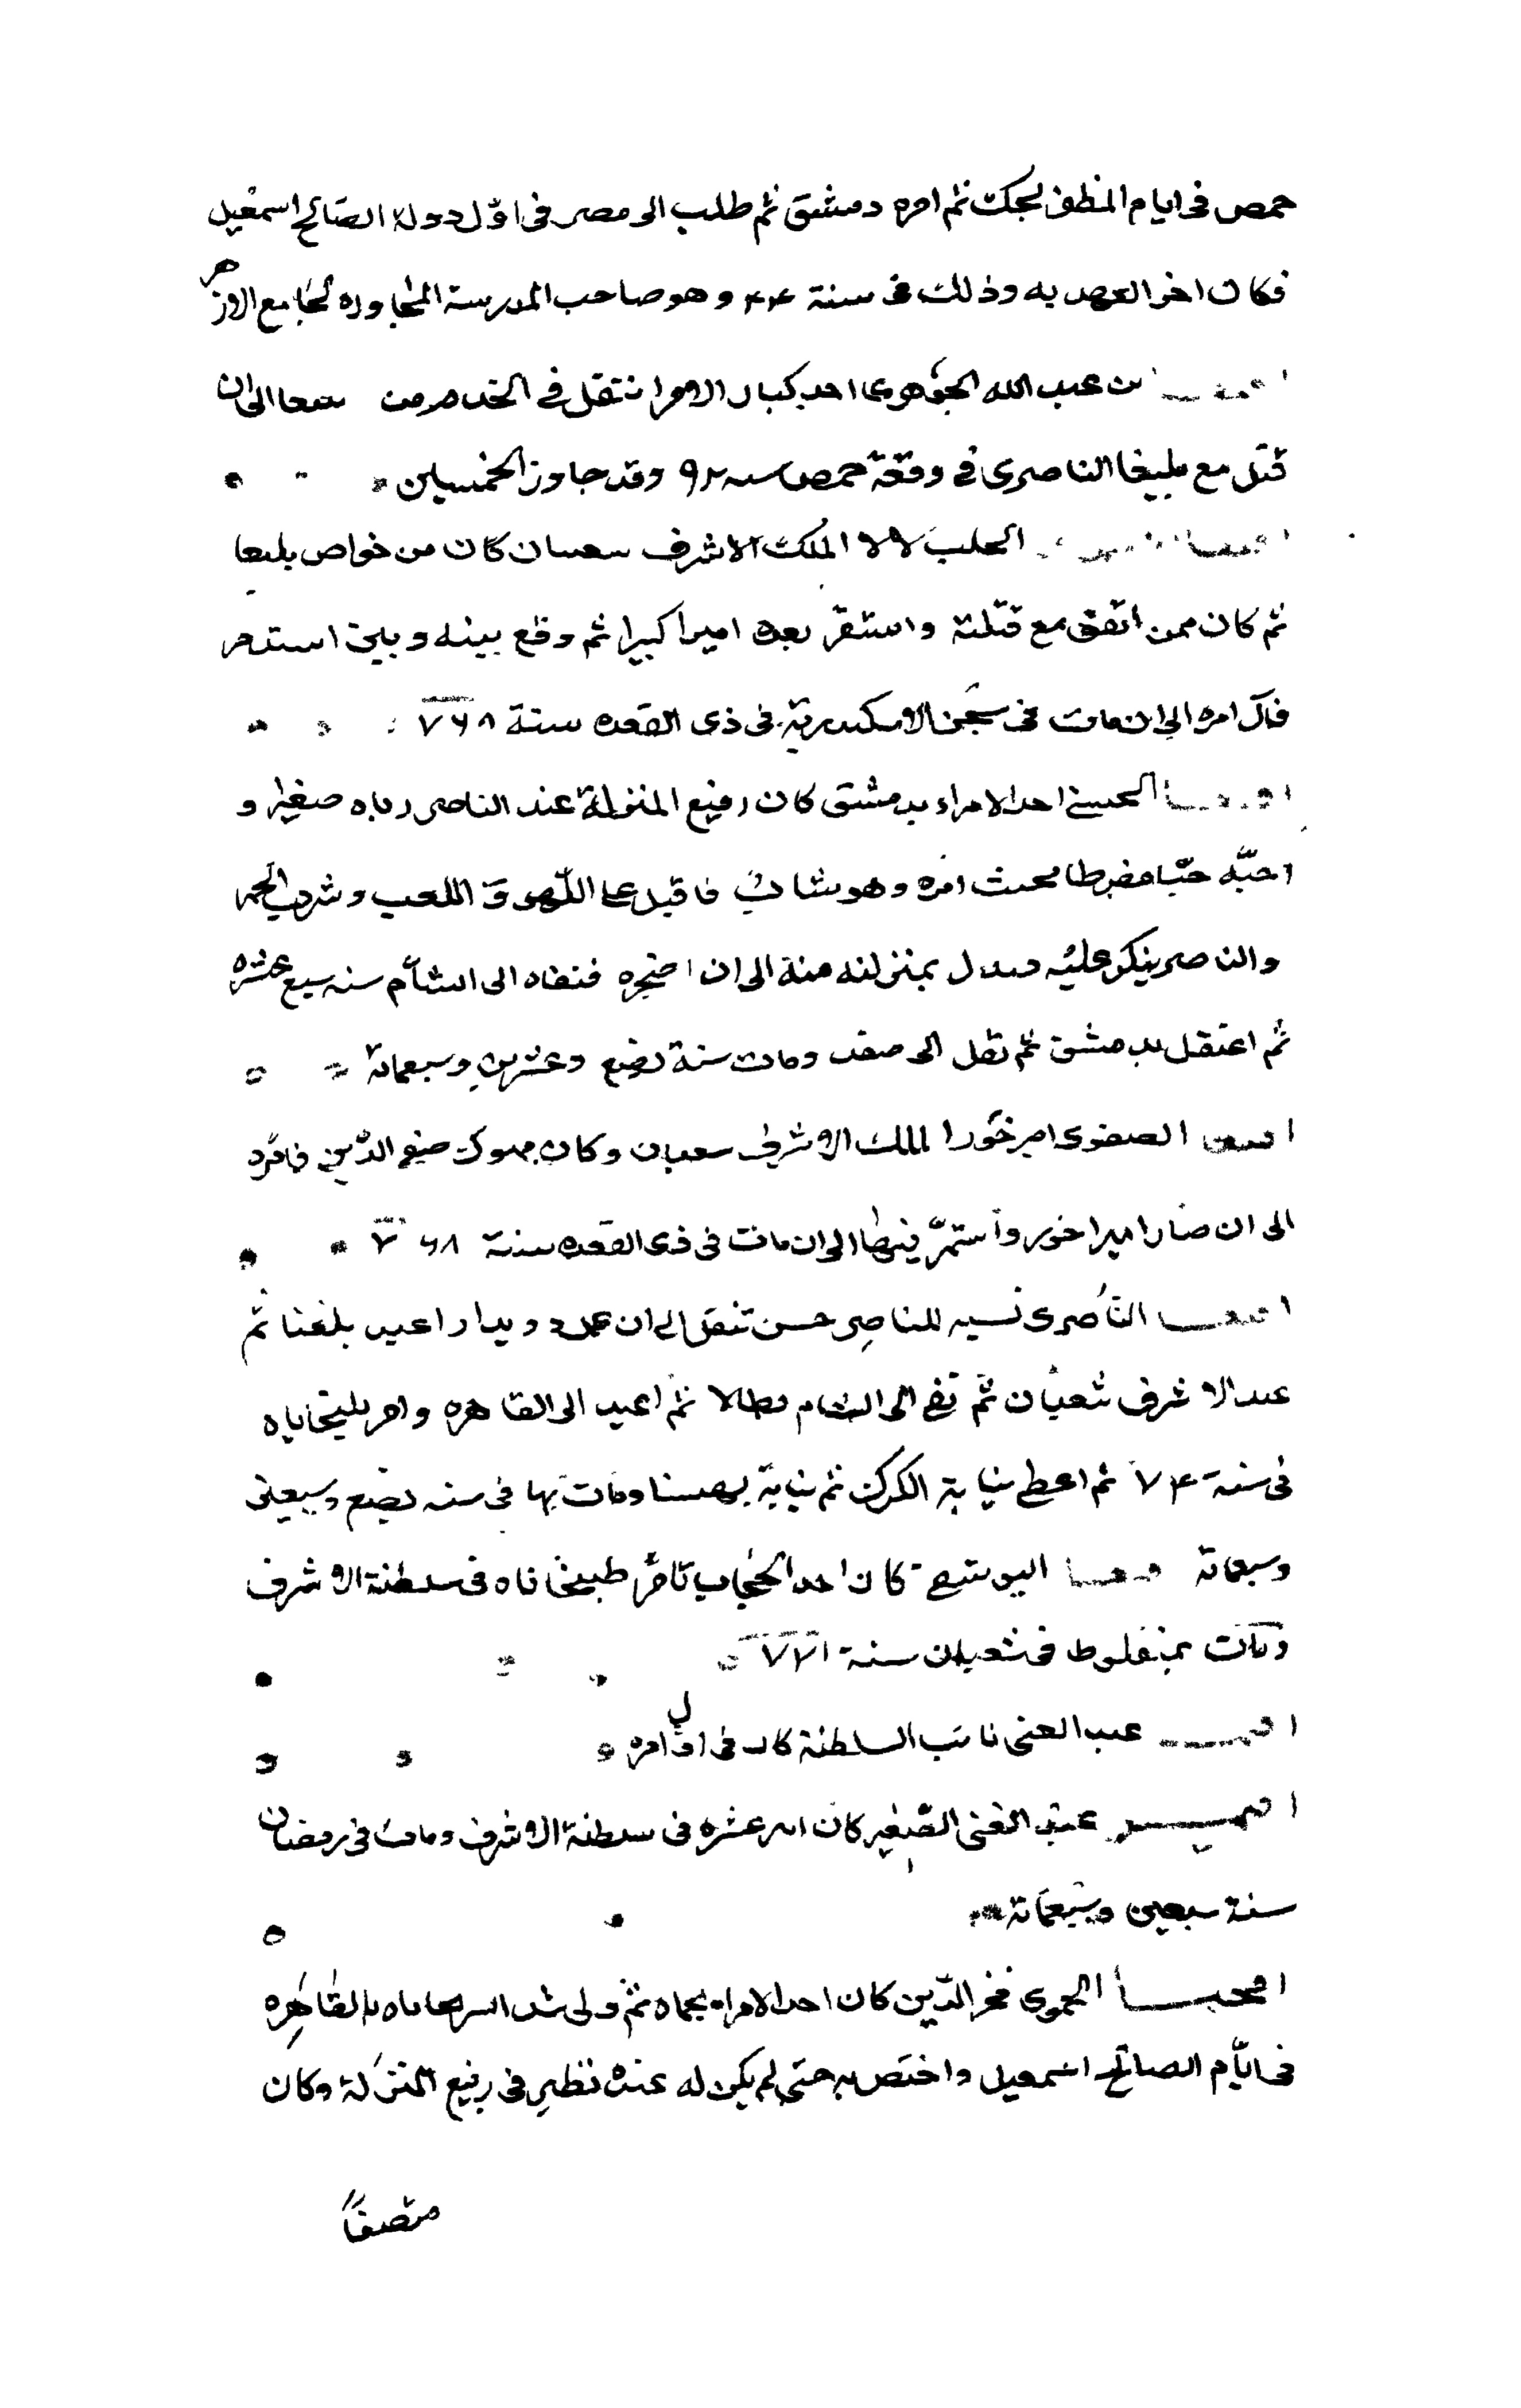 حمص فى ايام المظفر كجك ثم امره دمشق ثم طلب الى مصر فى اوّل دولة الصالح اسمعيل
فكان اخر العهد به وذلك فى سنة ٧٤٤ وهو صاحب المدرسة المجاوره لجامع الازهر
بن عبد الله الجوهرى احد كبار الامرا تنقل في الخدم من الى ان
قتل مع يلبغا الناصرى في وقعة حمص سنه ٩٢ وقد جاوز الخمسين
الحلب لالا الملك الاشرف شعبان كان من خواص يلبغا
ثم كان ممن اتفق مع قتلته واستقر بعده اميرا كبيرا ثم وقع بينه وبين استدمر
فآل امره الى ان مات فى سجن الاسكندرية فى ذى القعده سنة ٧٦٨
الحسنى احد الامراء بدمشق كان رفيع المنزلة عند الناصر رباه صغيرا و
احبّه حبّا مفرطا بحيث امره وهو شاب فاقبل على اللّهو و اللعب وشرب الخمر
والناصر ينكر عليه بمنزلته منه الى ان اضجره فنفاه الى الشأم سنه سبع عشره
ثم اعتقل بدمشق ثم نقل الى صفد ومات سنة بضع وعشرين وسبعمائة
الصفوى امير خورا الملك الاشرف شعبان وكان مملوك صفى الدّين
الى ان صار امير اخور واستمرّ فيها الى ان مات فى ذى القعده سنة ٧٦٨
النّاصرى نسبه للناصر حسن تنقل الى ان عمل دويدار اعند يلبغا ثم
عند الاشرف شعبان ثم نفى الى الشام بطالا ثم اعيد الى القاهره وامر طبلخاناه
فى سنة ٧٤ ثم اعطى نيابة الكرك ثم نيابة بهسنا ومات بها فى سنه بضع وسبعين
وسبعمائة اليوسفى كان احد الحجاب تامّر طبلخاناه فى سلطنة الاشرف
ومات بمنفلوط فى شعبان سنة ٧٧١
عبد الغنى نائب السلطنة كان فى اول امره
عبد الغنى الصّغير كان امير عشره فى سلطنة الاشرف ومات فى رمضان
سنة سبعين وسبعمائة
الحموى فخر الدّين كان احد الامراء بحماه ثم ولى شد الشربخاناه بالقاهره
فى ايّام الصالح اسمعيل واختص به حتى لم يكن له عنده نظير فى رفيع المنزلة وكان
متصفًا